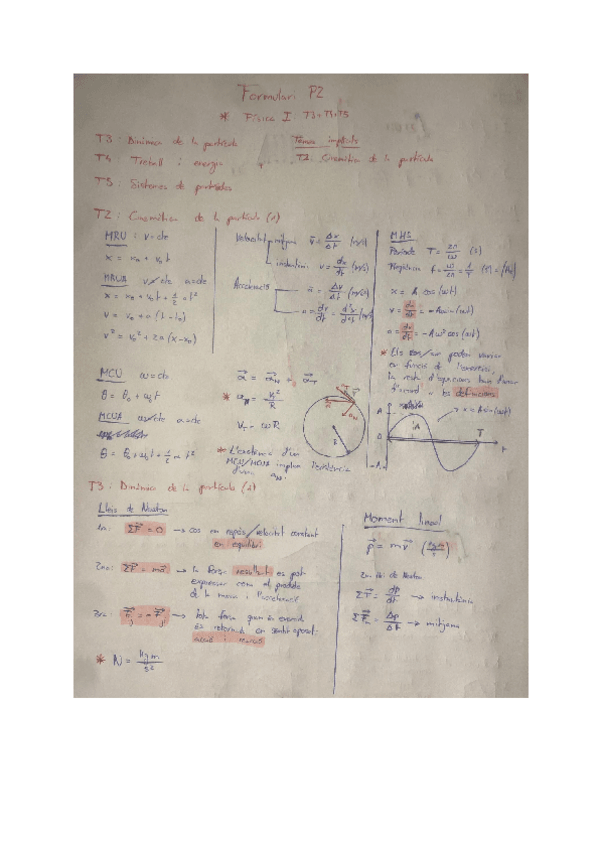 Formulari P2
* Física I T3+T4+T5
T3: Dinàmica de la partícula
T4 Treball i energia
T5: Sistemes de partícules
Temes implícits
T2: Cinemàtica de la partícula
T2: Cinemàtica de la partícula (1)
MRU: v=cte
x = x₀ + v₀t
MRUA v≠cte a=cte
x = x₀ + v₀t + 1/2 at²
v = v₀ + a(t-t₀)
v² = v₀² + 2a(x-x₀)
Velocitat mitjana v̄ = Δx/Δt (m/s)
instantània v = dx/dt (m/s)
Acceleració
ā = Δv/Δt (m/s²)
a = dv/dt = d²x/d²t (m/s²)
MHS
Període T = 2π/ω (s)
Freqüència f = ω/2π = 1/T
x = A cos(ωt)
v = dx/dt = -Aω sin(ωt)
a = dv/dt = -Aω² cos(ωt)
* Els cos/sin poden variar
en funció de
la resta d'equacions
d'acord a les definicions
MCU ω=cte
θ = θ₀ + ω₀t
MCUA ω≠cte α=cte
θ = θ₀ + ω₀t + 1/2 α t²
a⃗ = a⃗N + a⃗T
* aN = v²/R
vT = ωR
* L'existència d'un
MCU/MCUA implica l'existència
d'una aN
R
A
0
-A
A
T
t
x = A sin(ωt)
T3: Dinàmica de la partícula (2)
Lleis de Newton
1a: ΣF⃗ = 0 → cos en repòs/velocitat constant
en equilibri
2na: ΣF⃗ = ma⃗ → la força resultant es pot
expressar com el producte
de la massa i l'acceleració
→ tota força quan és exercida
és retornada en sentit oposat
acció i reacció
* N = kg m/s²
Moment lineal
p⃗ = mv⃗ (kg m/s)
2na llei de Newton
ΣF⃗ = dp⃗/dt → instantània
ΣF⃗m = Δp⃗/Δt → mitjana